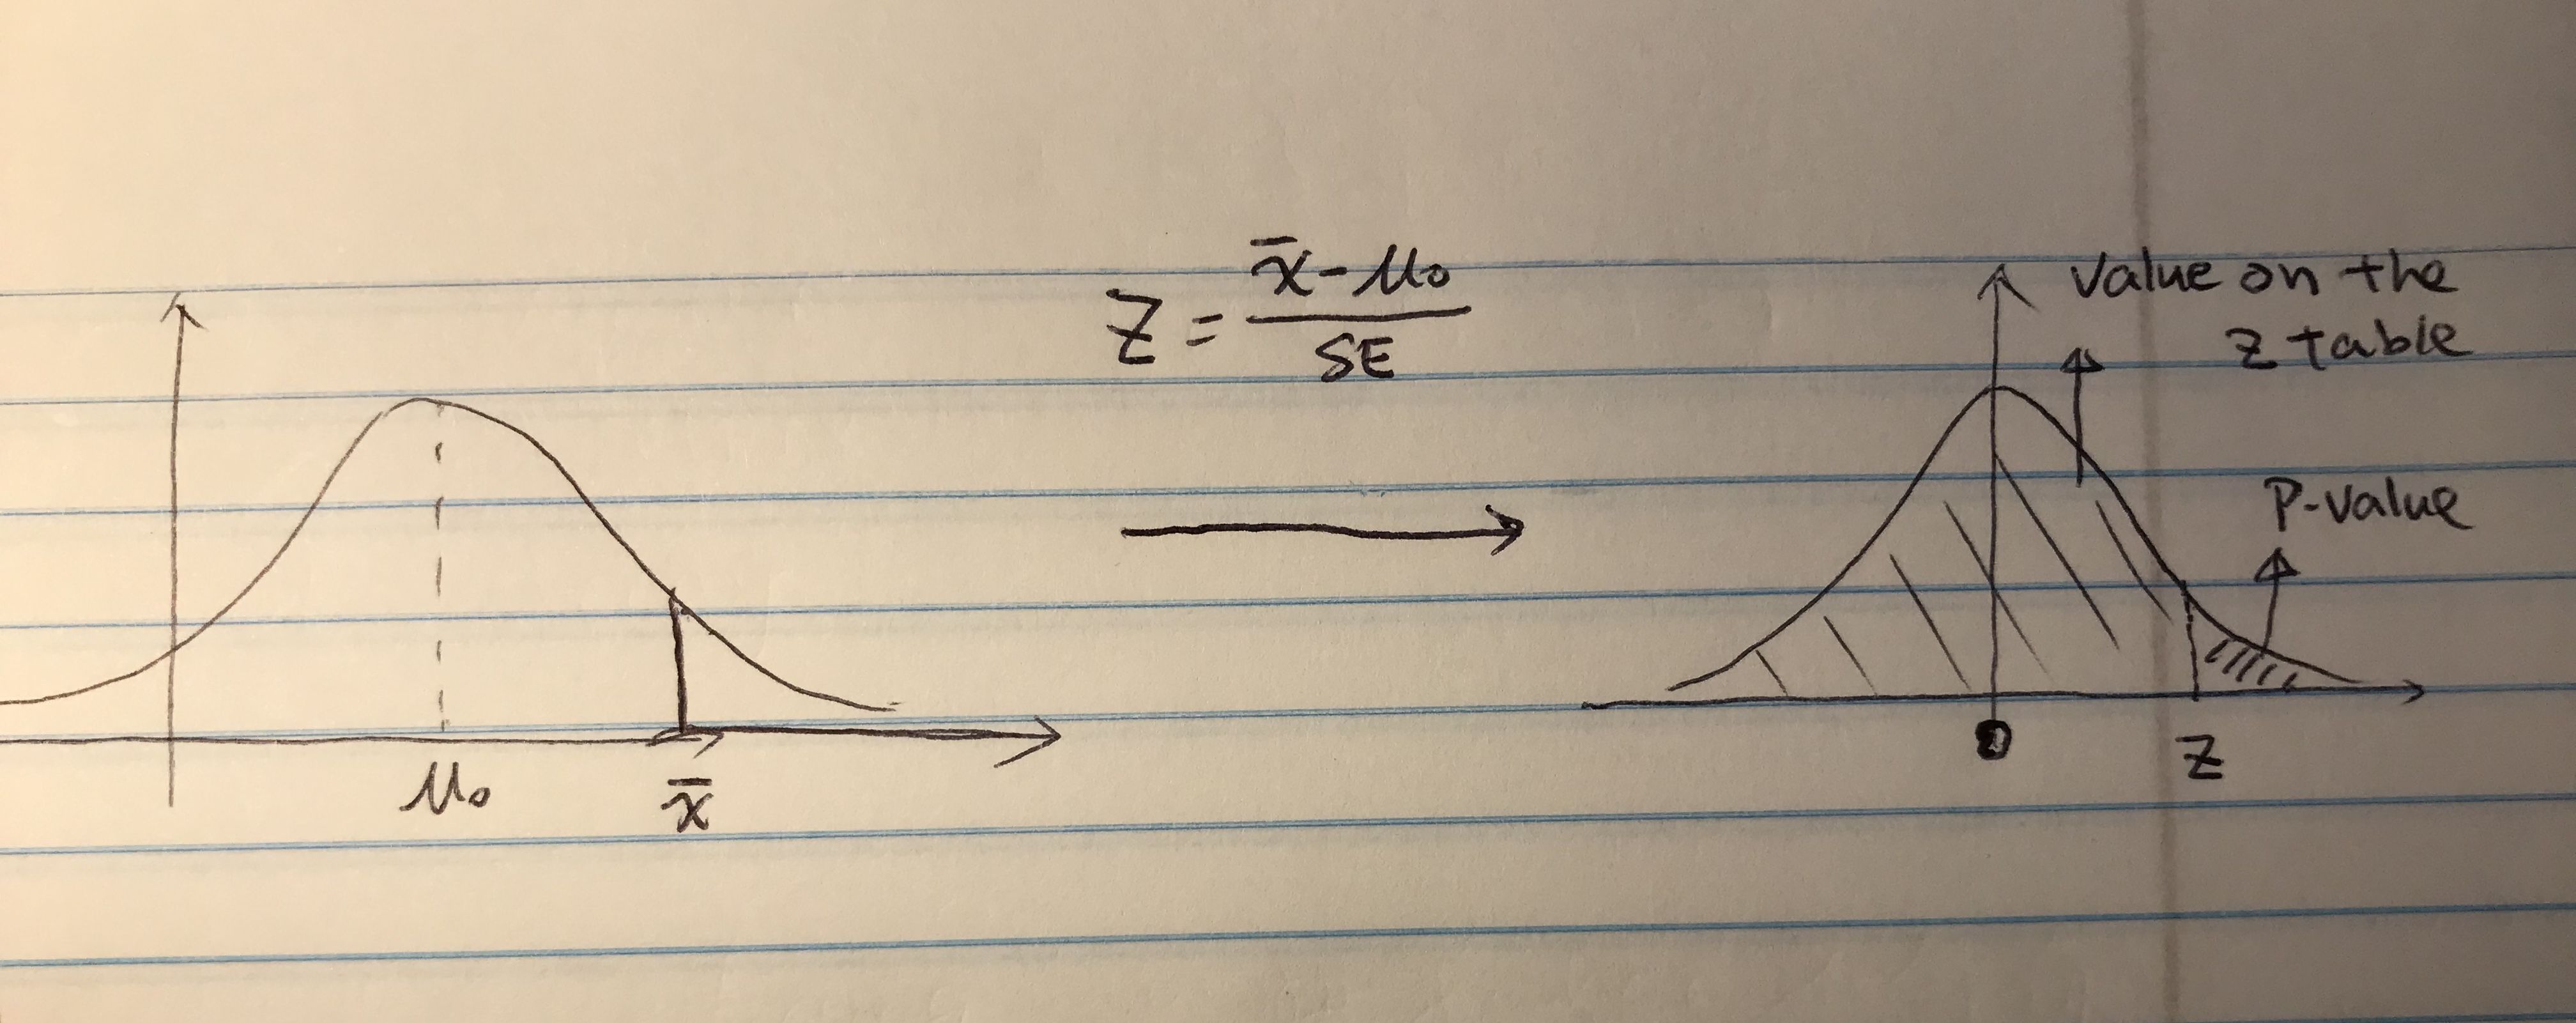 μ₀
x̄
Z = (x̄ - μ₀) / SE
value on the
z table
P-value
0
Z